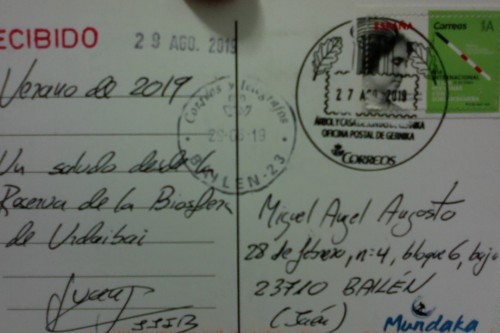 RECIBIDO 29 AGO. 2019
Verano de 2019
Un saludo desde la
Reserva de la Biosfera
de Urdaibai
ESPAÑA
Correos
1A
27 AGO 2019
OFICINA POSTAL DE GERNIKA
CORREOS
Correos y Telégrafos
29-08-19
BAILEN-23
Miguel Angel Angosto
28 de febrero, nº4, bloque 6, bajo
23710 BAILÉN
(Jaén)
Mundaka